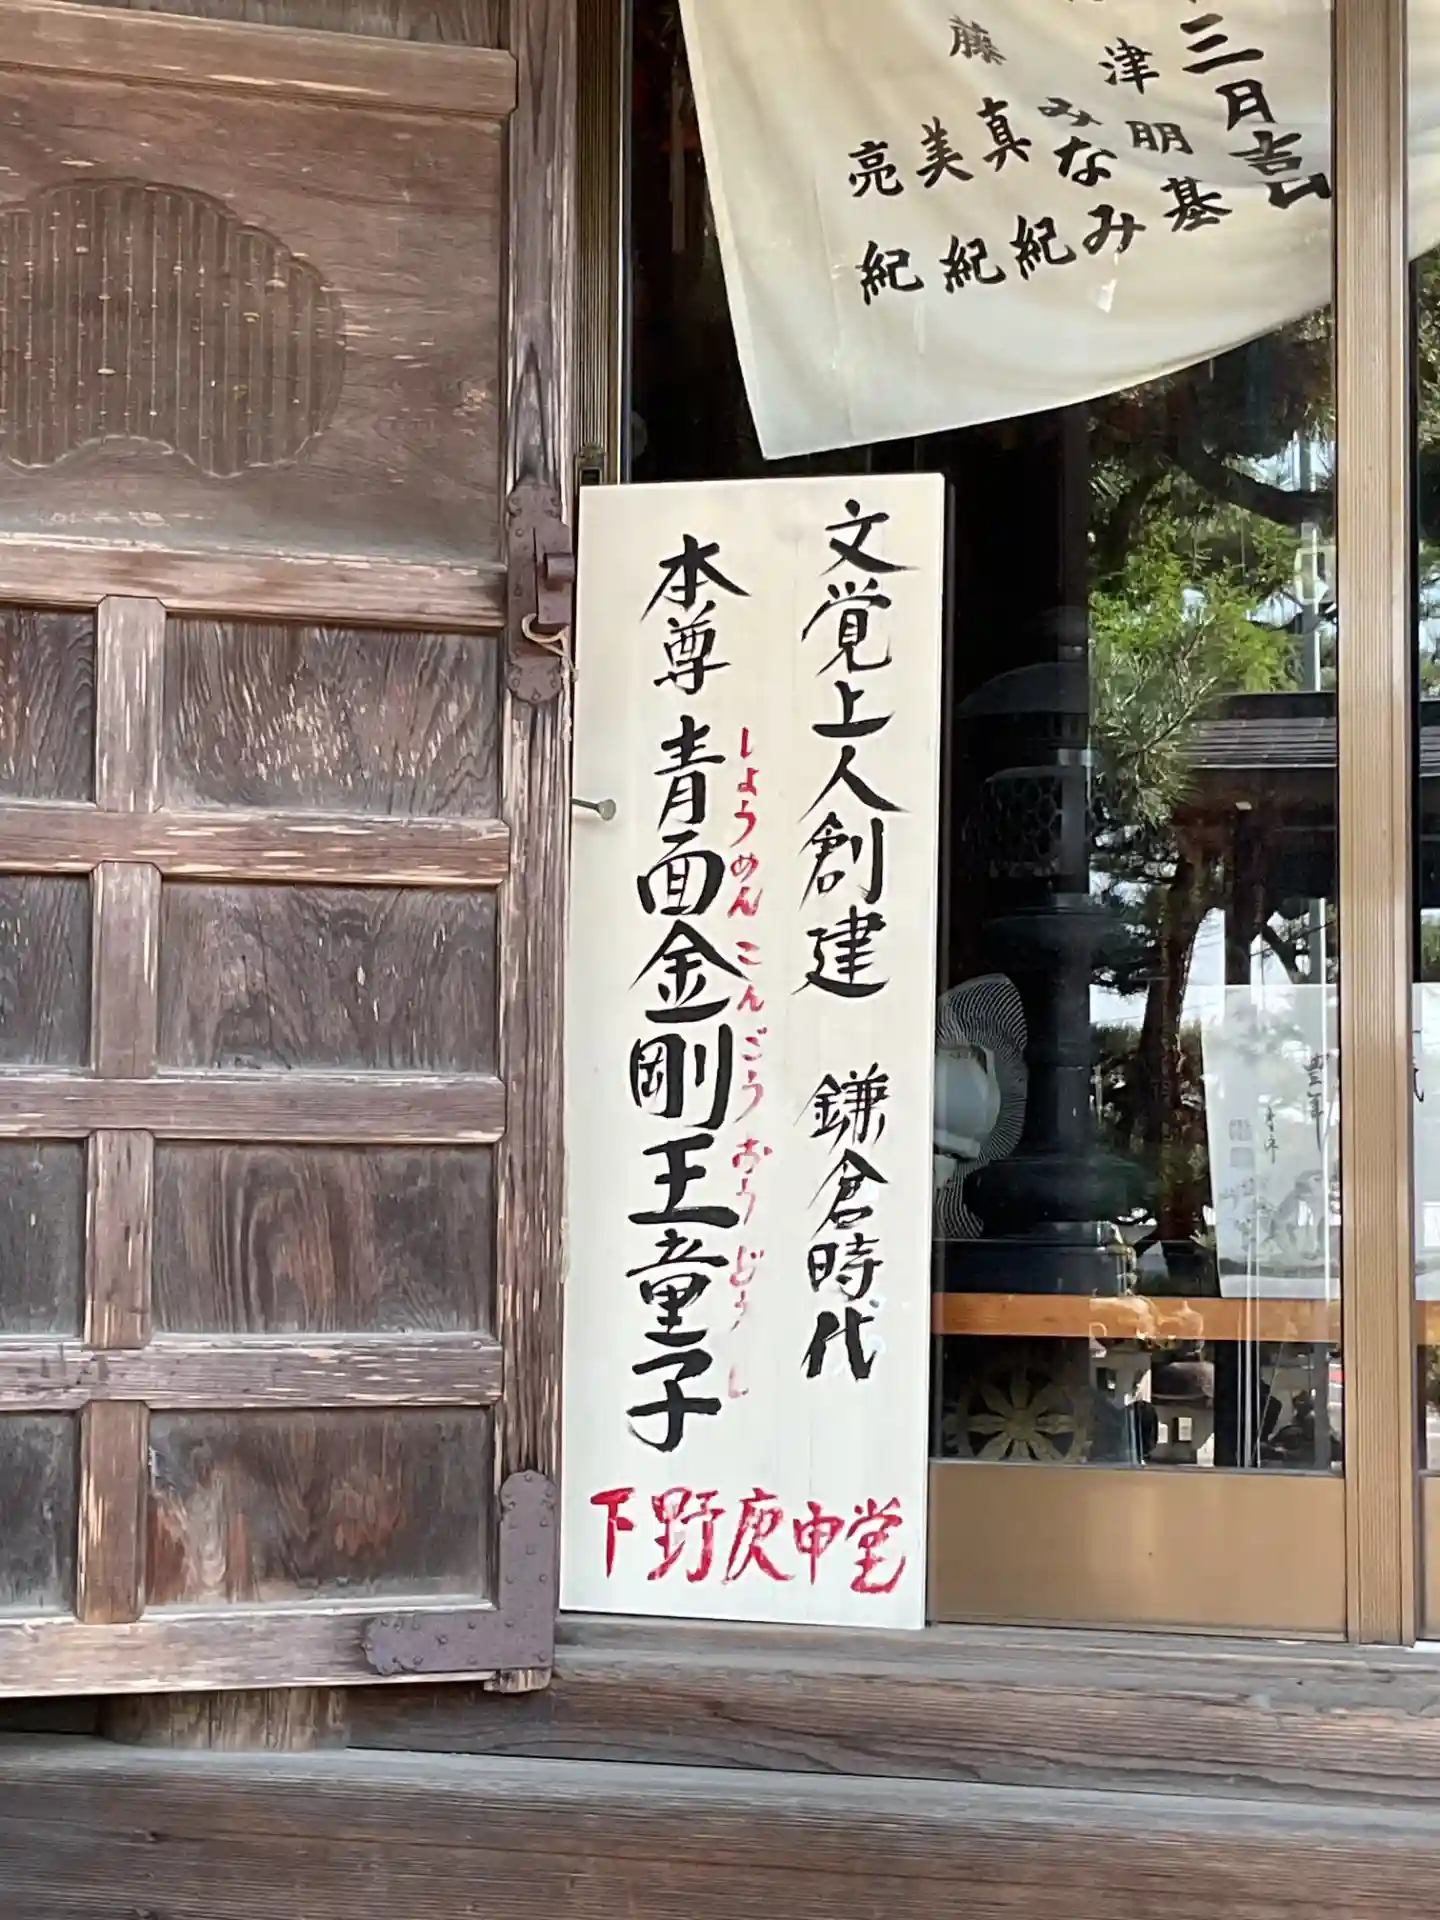 三月吉
津
朋基
みなみ
藤
真紀
美紀
亮紀
文覚上人創建 鎌倉時代
本尊 青面金剛王童子
しょうめんこんごうおうどうし
下野庚申堂
豊年